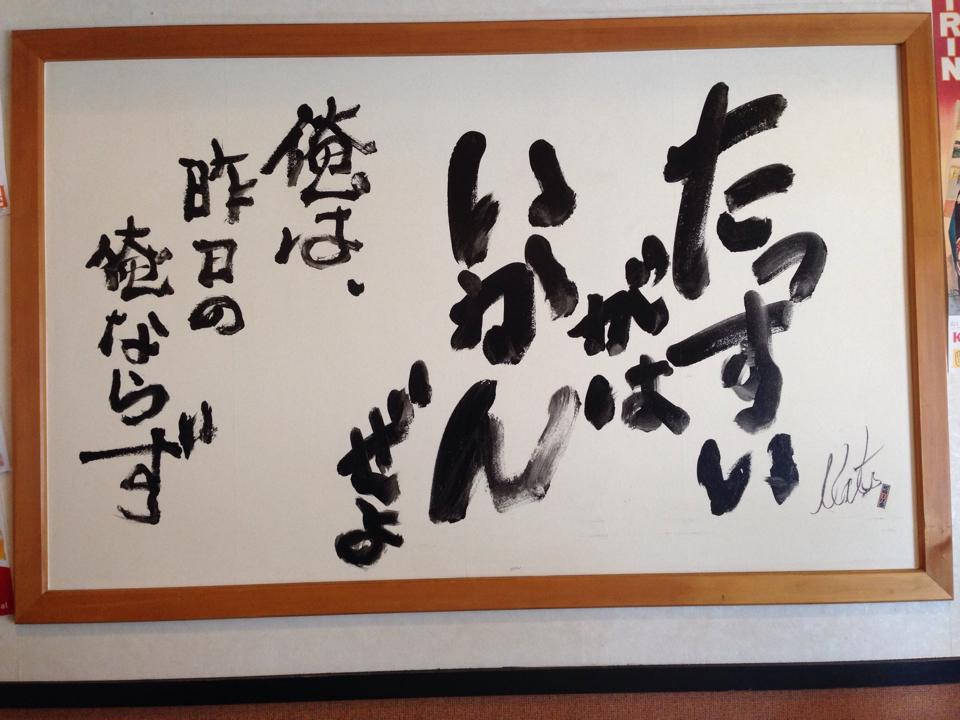 たっすい
がは
いかん
ぜよ
俺は、
昨日の
俺ならず
Kats
RIN
K